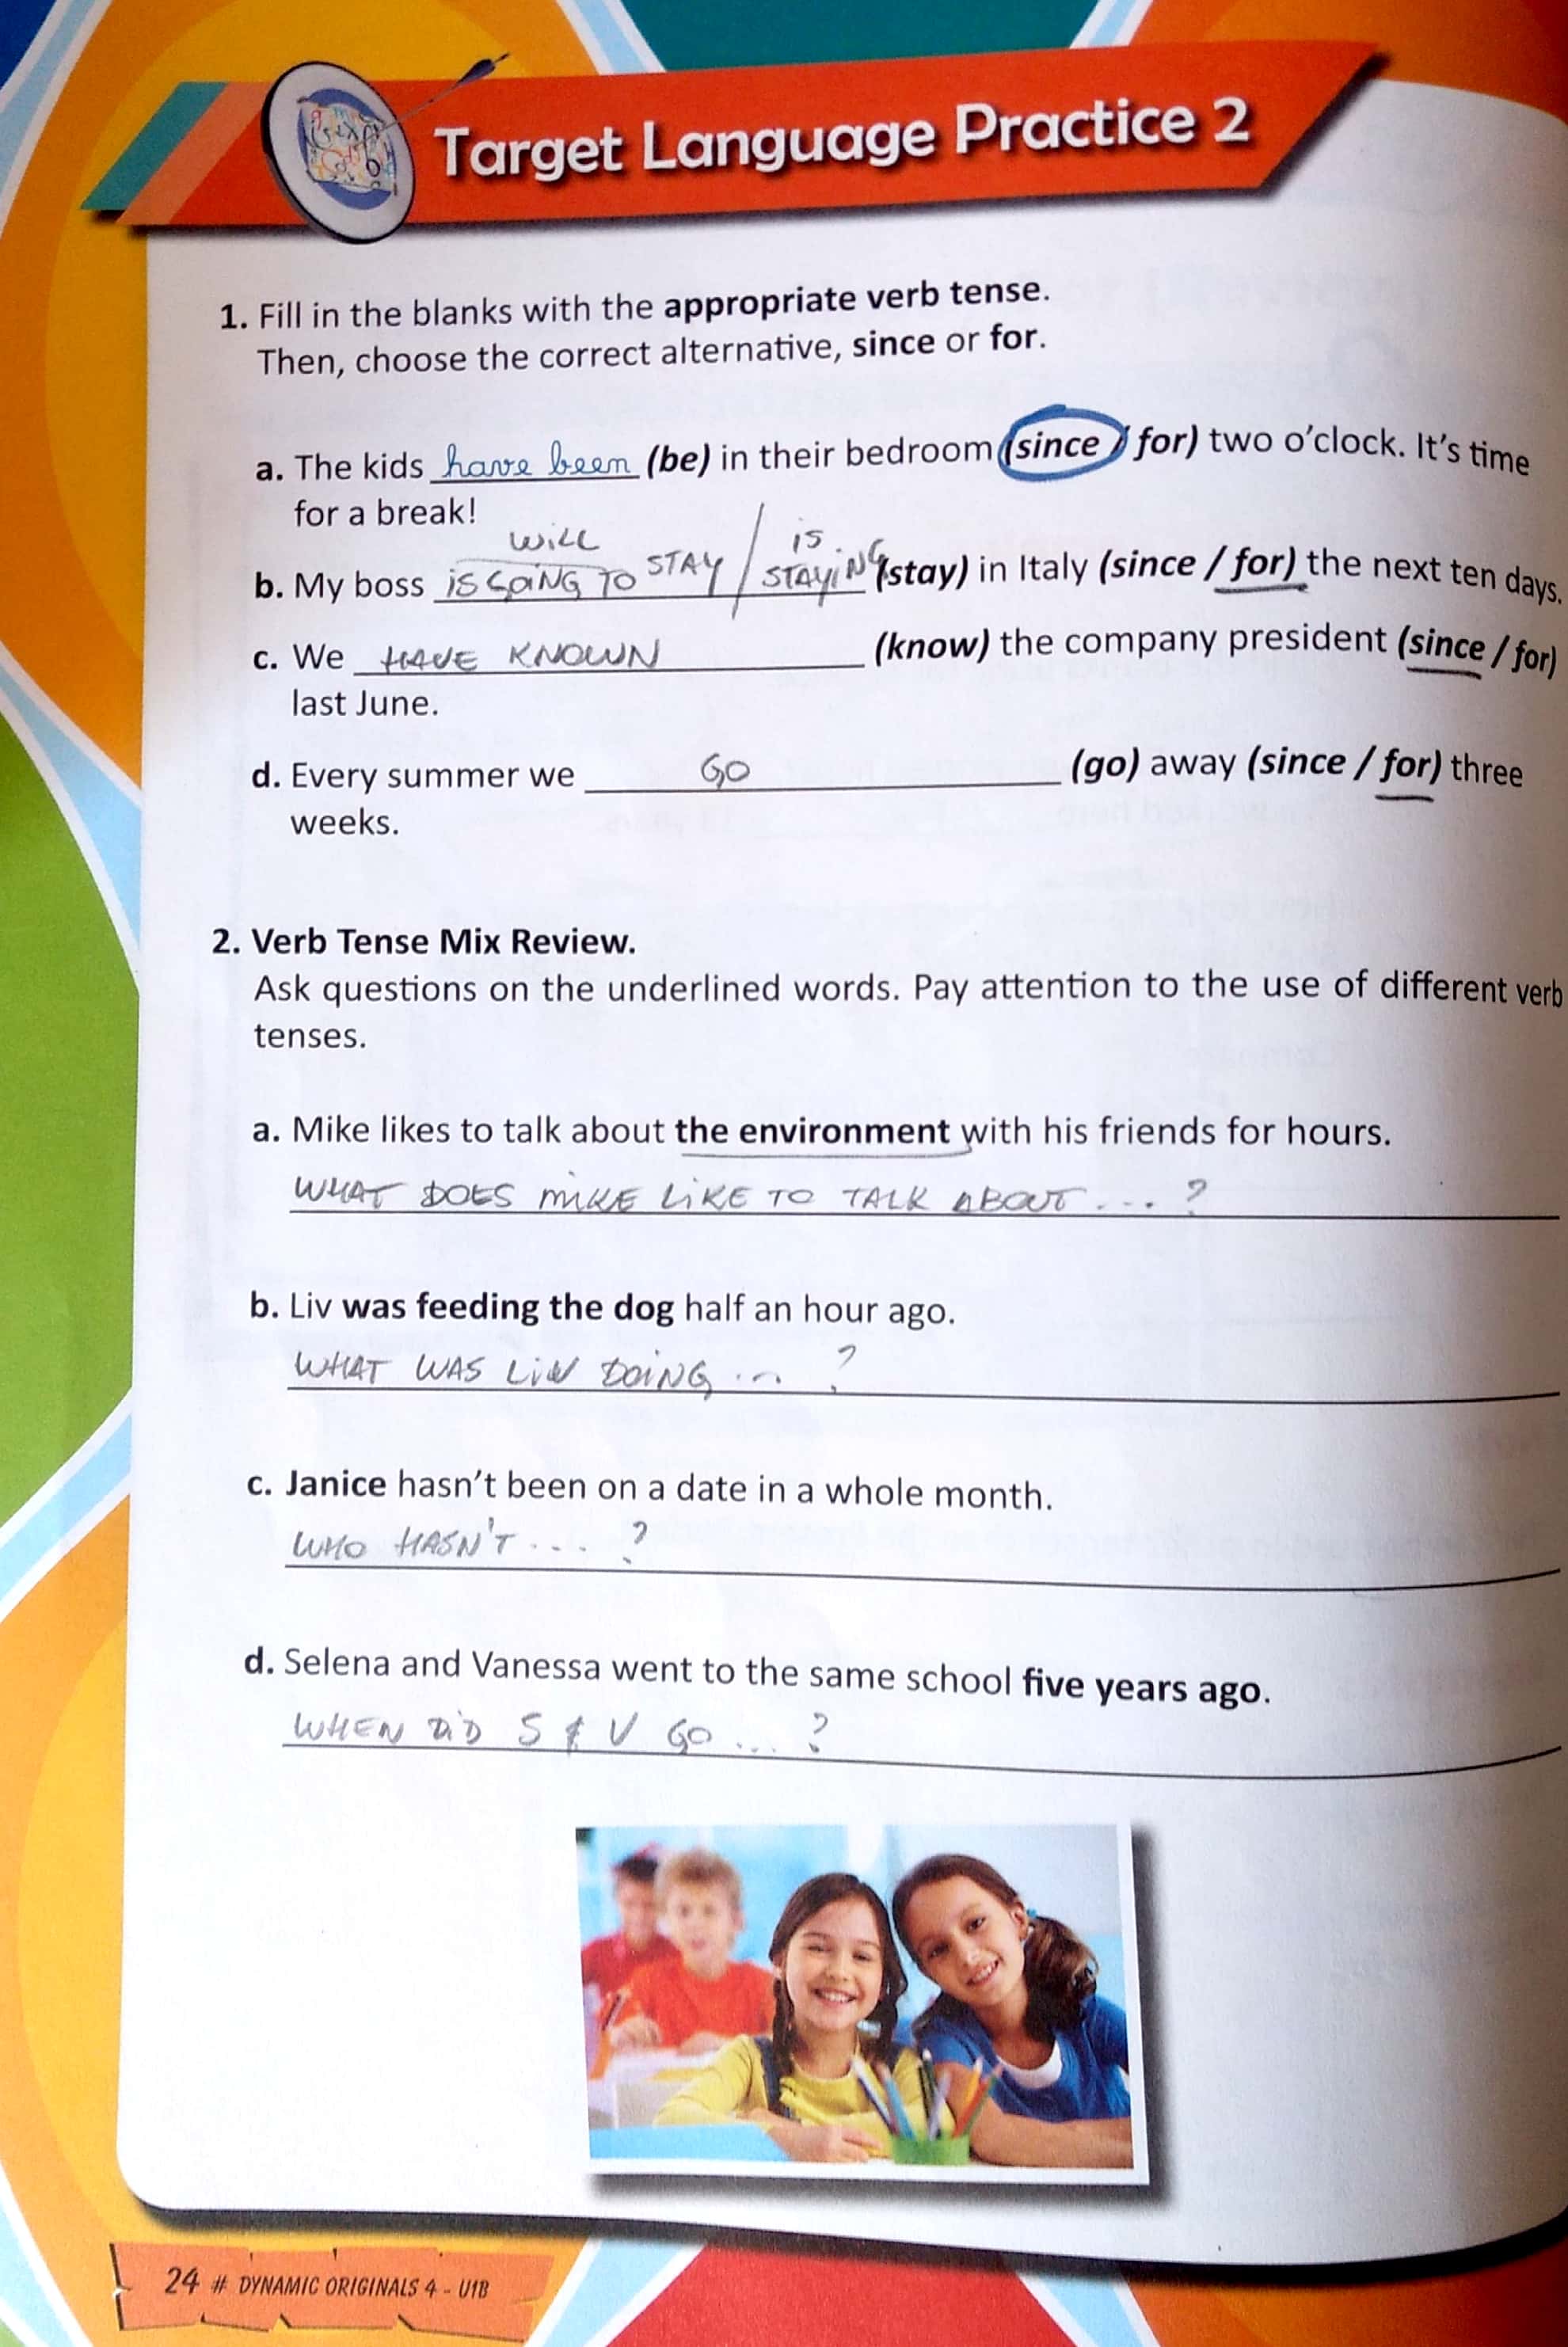 Target Language Practice 2
1. Fill in the blanks with the appropriate verb tense.
Then, choose the correct alternative, since or for.
a. The kids have been (be) in their bedroom (since / for) two o'clock. It's time
for a break!
WILL IS
b. My boss IS GOING TO STAY / STAYING (stay) in Italy (since / for) the next ten days.
c. We HAVE KNOWN (know) the company president (since / for)
last June.
d. Every summer we GO (go) away (since / for) three
weeks.
2. Verb Tense Mix Review.
Ask questions on the underlined words. Pay attention to the use of different verb
tenses.
a. Mike likes to talk about the environment with his friends for hours.
WHAT DOES MIKE LIKE TO TALK ABOUT ... ?
b. Liv was feeding the dog half an hour ago.
WHAT WAS LIV DOING ... ?
c. Janice hasn't been on a date in a whole month.
WHO HASN'T ... ?
d. Selena and Vanessa went to the same school five years ago.
WHEN DID S & V GO ... ?
24 # DYNAMIC ORIGINALS 4 - U1B